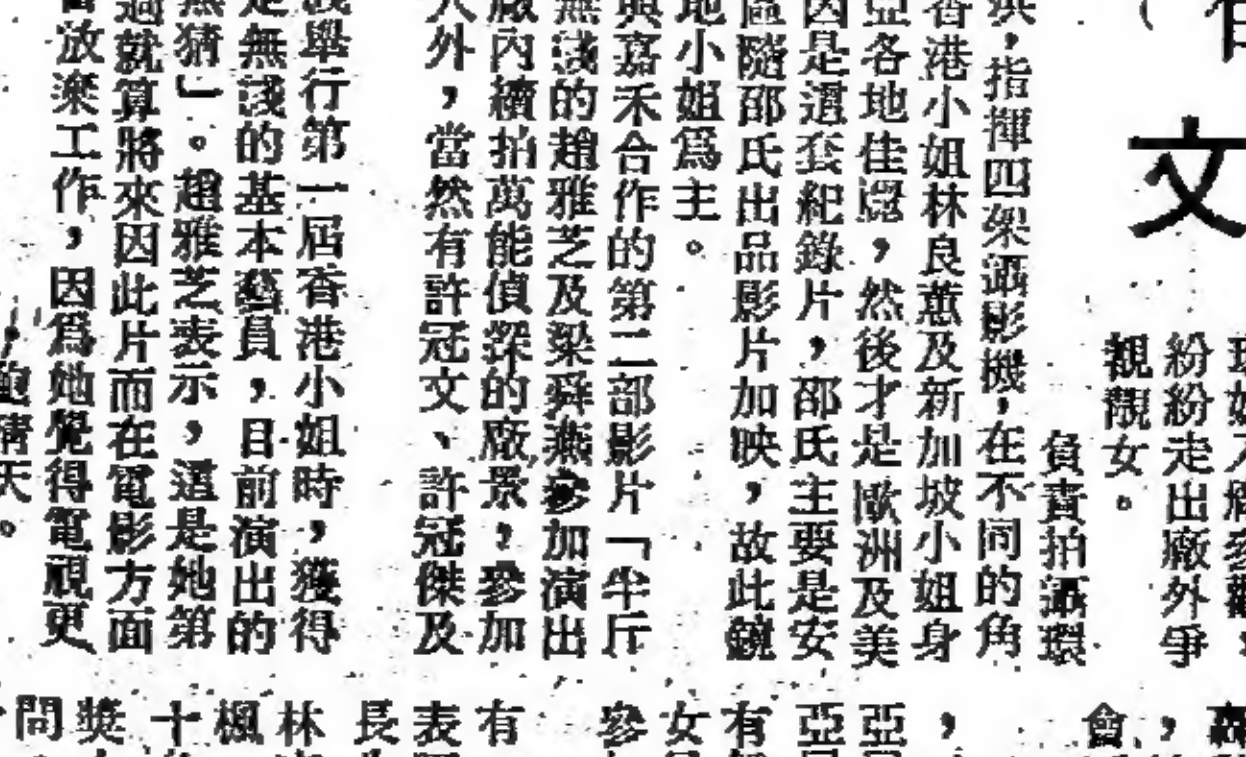 文
紛紛走出廠外爭
觀靚女。
負責拍攝環
指揮四架攝影機，在不同的角
香港小姐林良蕙及新加坡小姐身
亞各地佳麗，然後才是歐洲及美
因是這套紀錄片，邵氏主要是安
區隨邵氏出品影片加映，故此鏡
地小姐為主。
與嘉禾合作的第二部影片「半斤
無綫的趙雅芝及梁舜燕參加演出
廠內續拍萬能偵探的廠景，參加
人外，當然有許冠文、許冠傑及
舉行第一屆香港小姐時，獲得
是無綫的基本藝員，目前演出的
無猜」。趙雅芝表示，這是她第
過就算將來因此片而在電影方面
放棄工作，因為她覺得電視更
晴天。
會
，
亞
亞
有
女
參
有
表
長
林
楓
十
獎
問